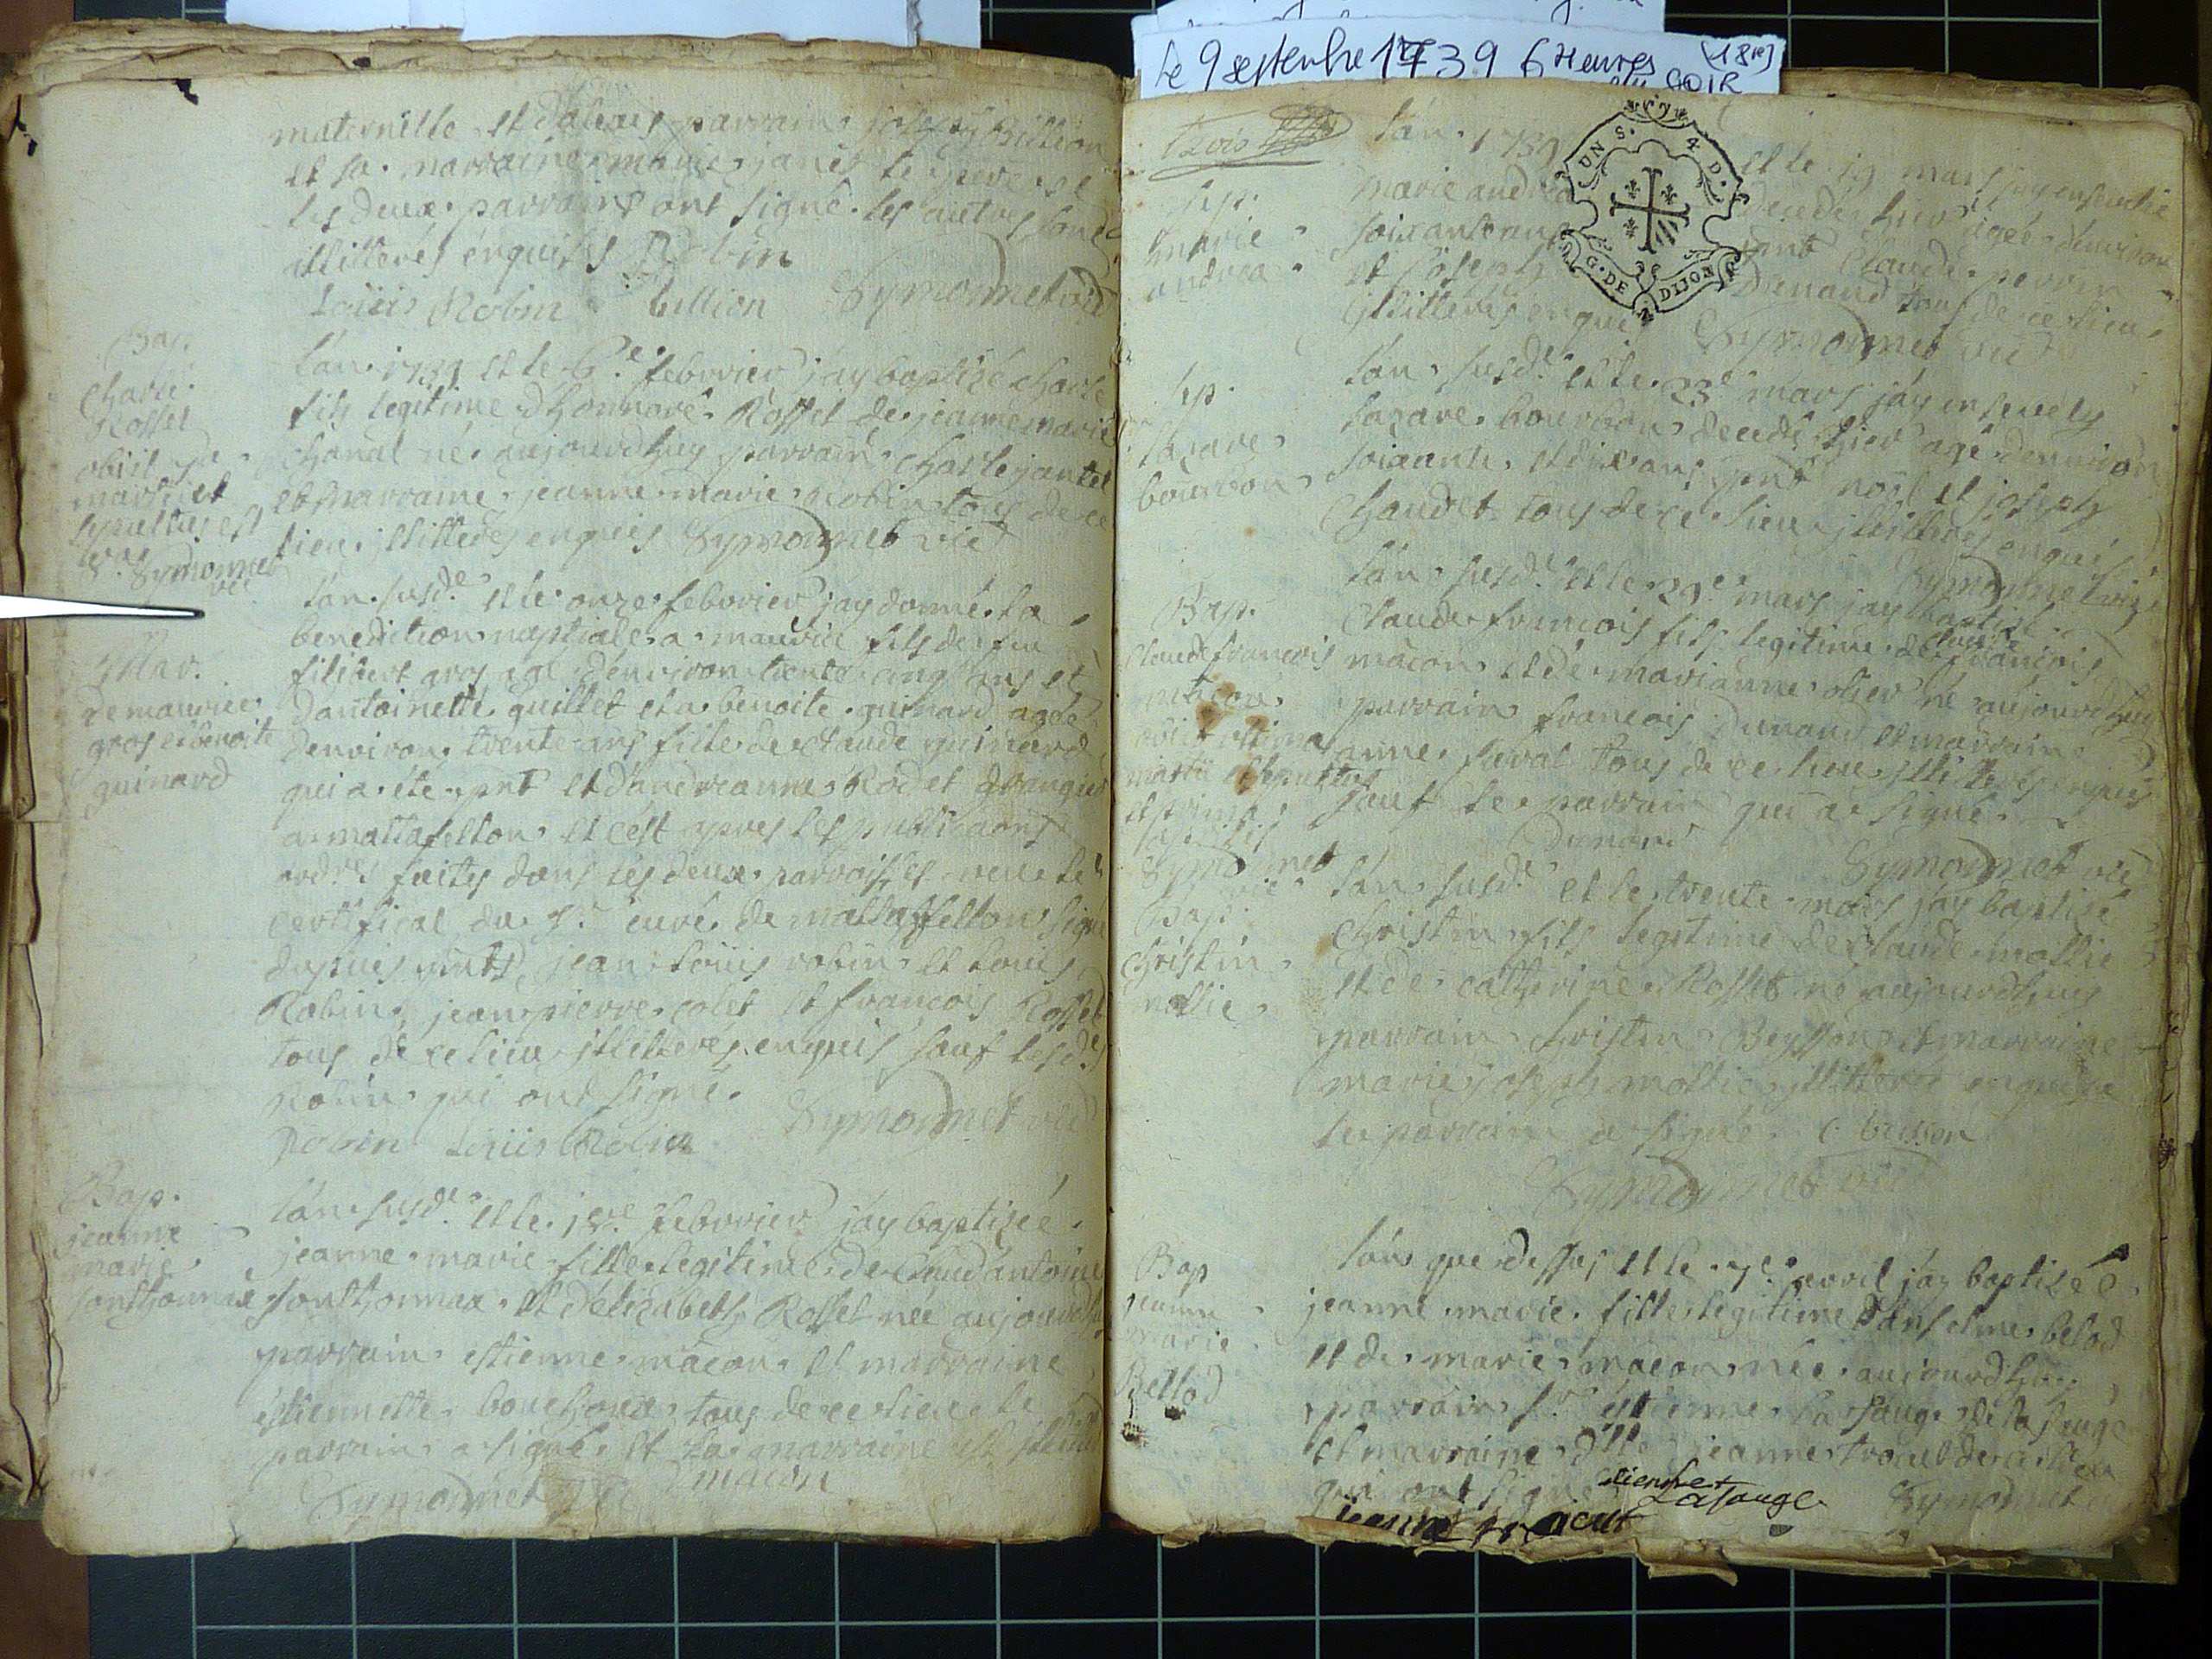 maternelle et parrain joseph Billion
et sa marraine marie janet le pere et
les deux parrains ont signé les autres sont
illitterés enquis Robin
Loüis Robin billion Symonnet vic
Bap.
Charle
Rosset
obiit
martii et
sepultus est
Symonnet
vic
lán 1739 et le 6.e febvrier jáy baptizé charle
fils legitime dhonnoré Rosset de jeanne marie
chanal né aujourdhuy parrain charle jantet
et marraine jeanne marie robin tous de ce
lieu illitterés enquis Symonnet vic
Mar.
de maurice
gros et benoite
guinard
lán susd.e et le onze febvrier jay donné la
benediction nuptiale a maurice fils de feu
filibert gros agé dénviron trente cinq ans et
dantoinette guillet et a benoite guinard agée
denviron trente ans fille de claude guinard
qui a été pnt et dandreanne Rodet
a mattafelton et cést apres les publicaons
ord.res faites dans les deux parroisses veu le
certificat du S.r curé de mattaffelton signé
dupuis pnts jean loüis robin et louis
Robin jean pierre colet et francois Rosset
tous de ce lieu illitterés enquis sauf lesd.s
Robin qui ont signé.
Robin Loüis Robin Symonnet vic
Bap.
jeanne
marie
sonthonnax
lán susd.e et le febvrier jáy baptizéé
jeanne marie fille legitime de Claudántoine
sonthonnax et délizabeth Rosset née aujourdhuy
parrain estienne mâcon et marraine
éstiennette bouchoux tous de ce lieu le
parrain a signé et la marraine
Symonnet vic macon
le 9 septembre 1739 6 Heures (18H)
du SOIR
trois
UN S. 4 D.
G. DE DIJON
Sep.
marie
andrea
lán 1739 et le 19 mars jáy enseveli
marie andrea decedée hier agée denviron
soixante ans pnt Claude perrin
et joseph Dunand tous de ce lieu
illitterés enquis Symonnet vic
Sep.
lazare
bourbon
lán susd.e et le 23.e mars jáy ensevely
lazare bourbon decedé hier agé denviron
soixante et dix ans pnt noël et joseph
Chaudet tous de ce lieu illitterés enquis
Symonnet vic
Bap.
Claude francois
mâcon
obiit ultima
martii et sepultus
est prima
aprilis
Symonnet
vic
lán susd.e et le 29.e mars jáy baptizé
Claude francois fils legitime de francois
mâcon et dé marianne olier né aujourdhuy
parrain francois Dunand et marraine
anne tous de ce lieu illitterés enquis
sauf le parrain qui a signé
Dunand Symonnet vic
Bap.
Christin
mollie
lán susd.e et le trente mars jáy baptizé
Christin fils legitime de claude mollie
et de catherine Rosset né aujourdhuy
parrain Cristin Beysson et marraine
marie joseph mollie illitterée enquise
le parrain a signé. C busson
Symonnet vic
Bap
jeanne
marie
Bellod
lán que dessus et le 7.e avril jáy baptizéé
jeanne marie fille legitime dánselme belod
et de marie macon née aujourdhuy
parrain S.r éstienne La sauge de la sauge
et marraine d.lle jeanne
qui ont signé
etienne
Lasauge
jeanne Symonnet